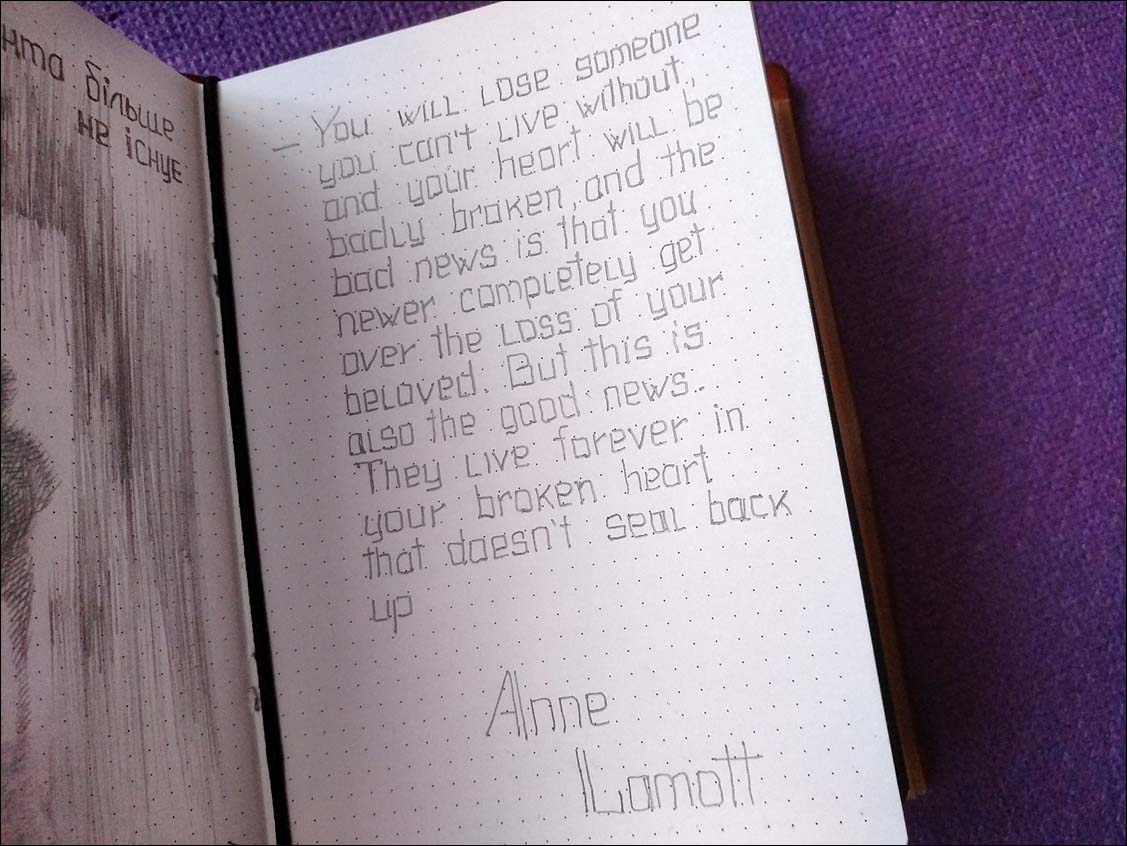 нта більше
не існує
— You will lose someone
you can't live without,
and your heart will be
badly broken, and the
bad news is that you
newer completely get
over the loss of your
beloved. But this is
also the good news.
They live forever in
your broken heart
that doesn't seal back
up
Anne
Lamott